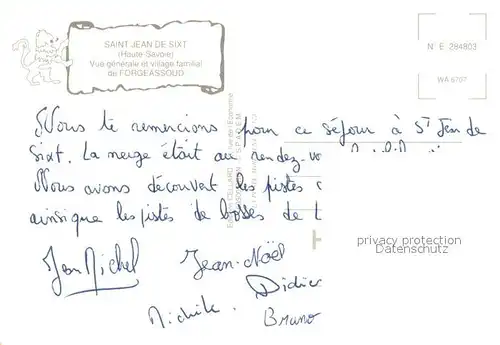 SAINT JEAN DE SIXT
(Haute-Savoie)
Vue générale et village familial
de FORGEASSOUD
N° E 294803
WA 6707
Nous te remercions pour ce séjour à St Jean de
Sixt. La neige était au rendez-vo
Nous avons découvert les pistes
ainsi que les pistes de bosses de
privacy protection
Datenschutz
Jean Michel
Jean-Noël
Didier
Michèle.
Bruno